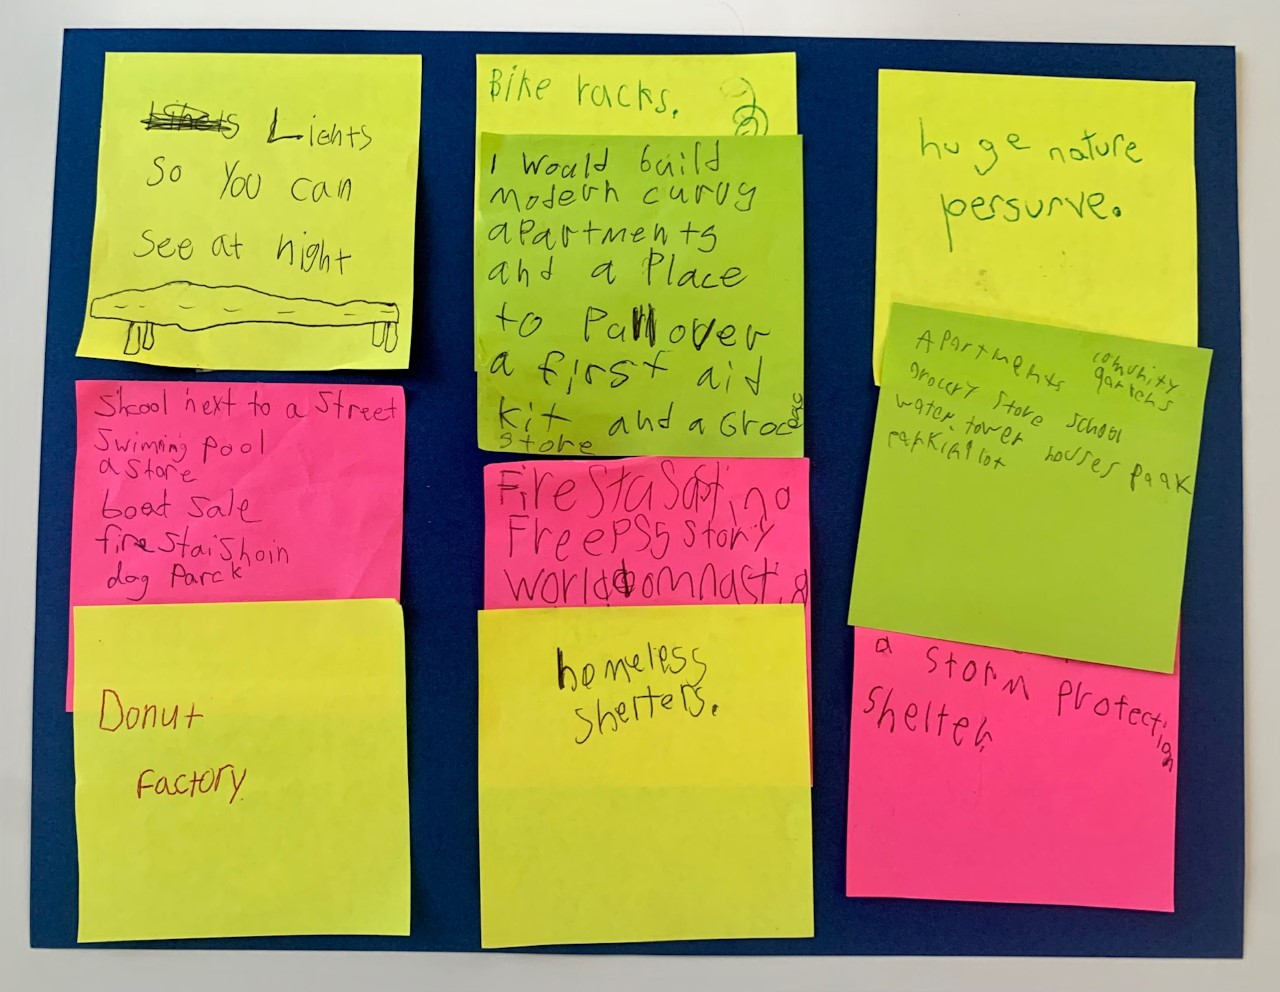 Lights
So You can
see at night
Skool next to a Street
Swimming pool
a store
boat sale
fire staishoin
dog Parck
Donut
Factory
Bike racks.
I would build
modern curvy
apartments
and a Place
to Pull over
a first aid
kit and a Grocery
store
Free PS5 story
homeless
shelters.
huge nature
persurve.
Apartments comunity
gardens
Grocery store school
water tower houses paak
a storm protection
shelter